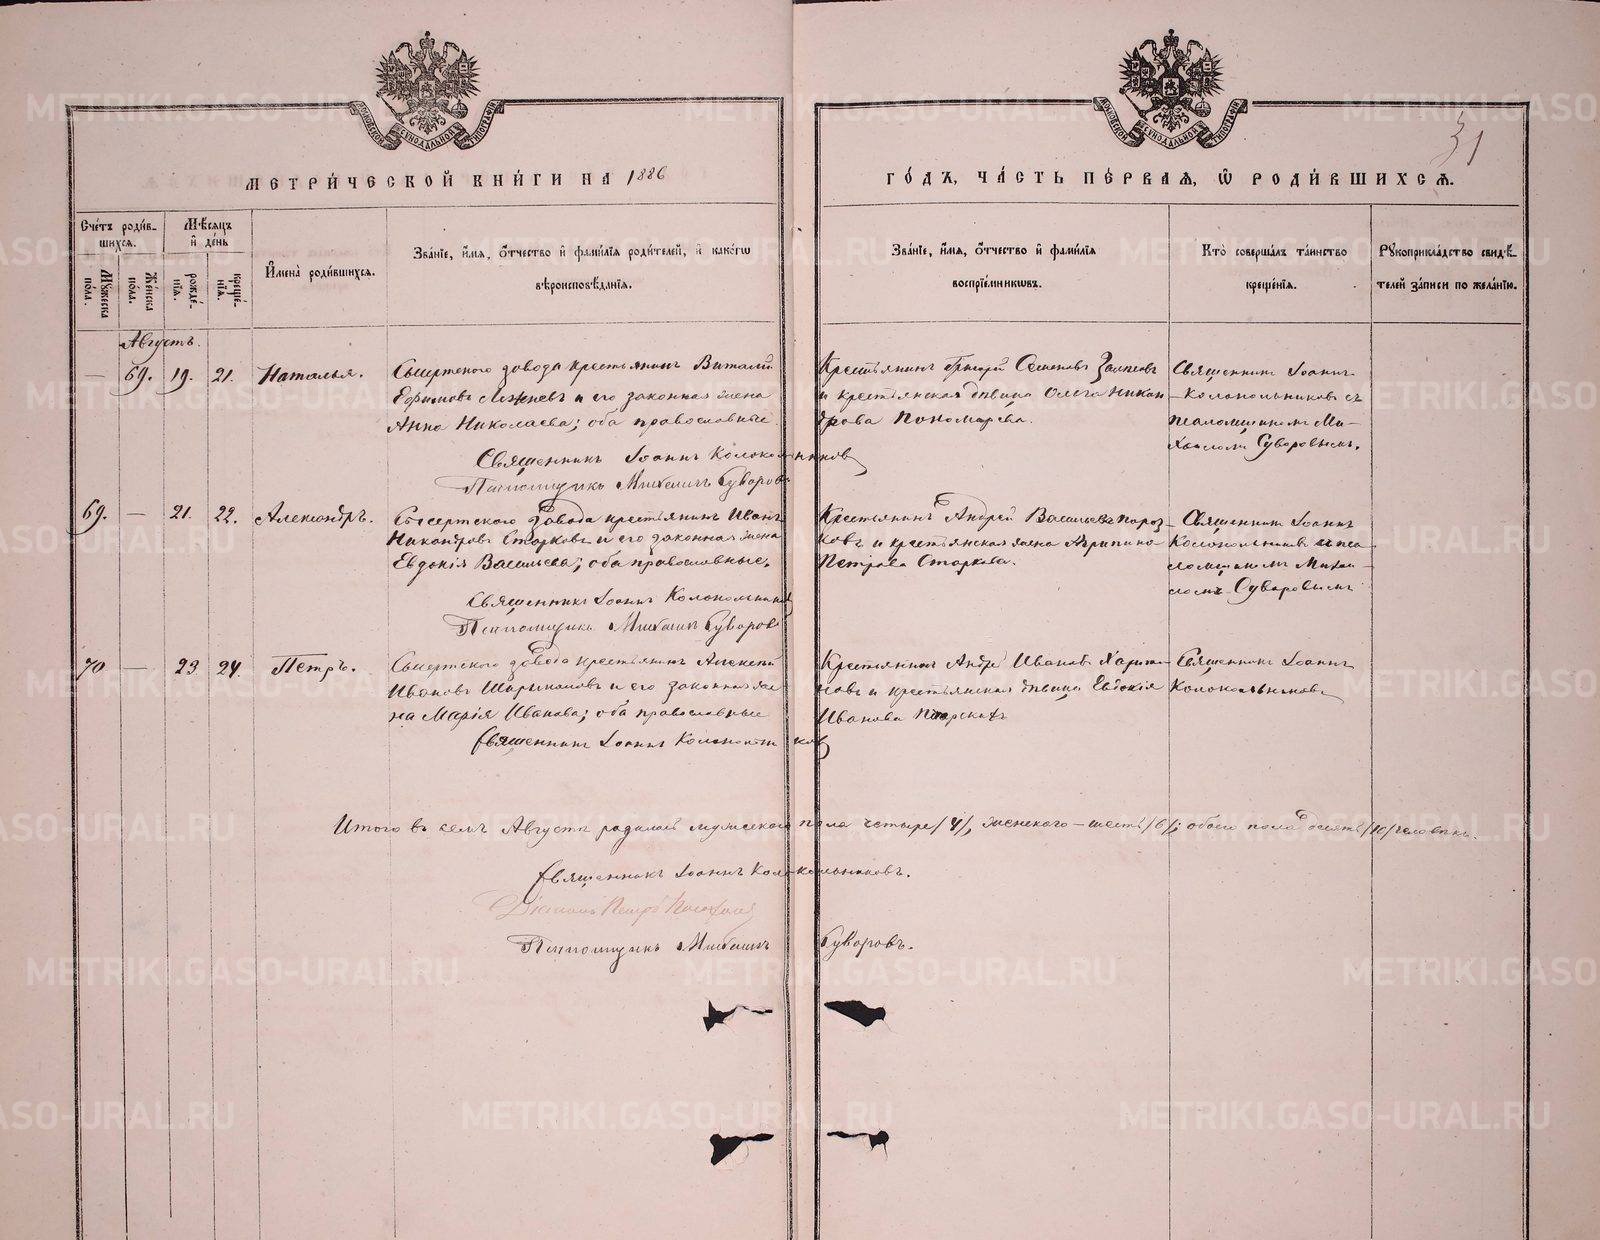 МОСКОВСКОЙ СѴНОДАЛЬНОЙ ТИПОГРАФІИ
МОСКОВСКОЙ СѴНОДАЛЬНОЙ ТИПОГРАФІИ
31
МЕТРИ́ЧЕСКОЙ КНИ́ГИ НА 1886
ГО́ДЪ, ЧА́СТЬ ПЕ́РВАЯ, Ѡ҆ РОДИ́ВШИХСѦ.
Сче́тъ роди́в-
шихся.
Мѣ́сяцъ
и҆ де́нь
Мꙋ́жеска по́ла.
Же́нска по́ла.
рожде́-
нїя.
креще́-
нїя.
И҆мена̀ роди́вшихся.
Зва́нїе, и҆́мя, ѻ҆́тчество и҆ фами́лїя роди́телей, и҆ како́гѡ
вѣроисповѣ́данїя.
Зва́нїе, и҆́мя, ѻ҆́тчество и҆ фами́лїя
воспрїе́мникѡвъ.
Кто̀ соверша́лъ та́инство
креще́нїя.
Рꙋкоприкла́дство свидѣ́-
телей за́писи по жела́нїю.
Августъ.
— 69. 19. 21. Наталья.
Сысертскаго завода крестьянинъ Виталій
Ефимовъ и его законная жена
Анна Николаева; оба православные.
Священникъ Іоаннъ Колокольниковъ
Псаломщикъ Михаилъ Суворовъ
Крестьянинъ Григорій Семеновъ
и крестьянская дѣвица Ольга Никан-
дрова Пономарева.
Священникъ Іоаннъ
Колокольниковъ съ
псаломщикомъ Ми-
хаиломъ Суворовымъ.
69. — 21. 22. Александръ.
Сысертскаго завода крестьянинъ Иванъ
Никандровъ Старковъ и его законная жена
Евдокія Васильева; оба православные.
Священникъ Іоаннъ Колокольниковъ
Псаломщикъ Михаилъ Суворовъ
Крестьянинъ Андрей Васильевъ
и крестьянская жена Агрипина
Петрова Старкова.
Священникъ Іоаннъ
Колокольниковъ съ пса-
ломщикомъ Михаи-
ломъ Суворовымъ
70 — 23. 24. Петръ.
Сысертскаго завода крестьянинъ Алексѣй
Ивановъ и его законная же-
на Марія Иванова; оба православные
Священникъ Іоаннъ Колокольниковъ
Крестьянинъ Андрей Ивановъ Харито-
новъ и крестьянская дѣвица Евдокія
Иванова
Священникъ Іоаннъ
Колокольниковъ
Итого въ семъ Августѣ родилось мужескаго пола четыре /4/, женскаго – шесть /6/; обоего пола десять /10/ человѣкъ.
Священникъ Іоаннъ Колокольниковъ.
Діаконъ Петръ
Псаломщикъ Михаилъ Суворовъ.
METRIKI.GASO-URAL.RU